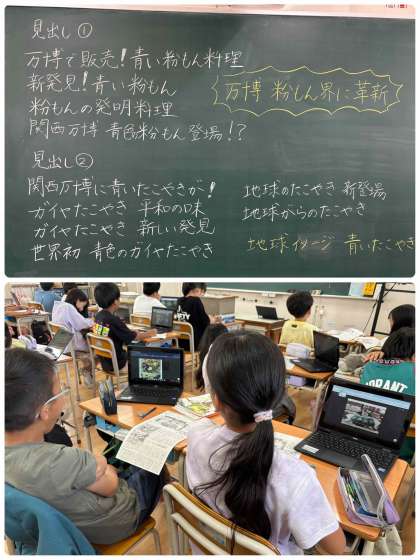 見出し①
万博で販売！青い粉もん料理
新発見！青い粉もん
粉もんの発明料理
関西万博 青色粉もん登場！？
万博 粉もん界に革新
見出し②
関西万博に青いたこやきが！
ガイヤたこやき 平和の味
ガイヤたこやき 新しい発見
世界初 青色のガイヤたこやき
地球のたこやき 新登場
地球からのたこやき
地球イメージ 青いたこやき